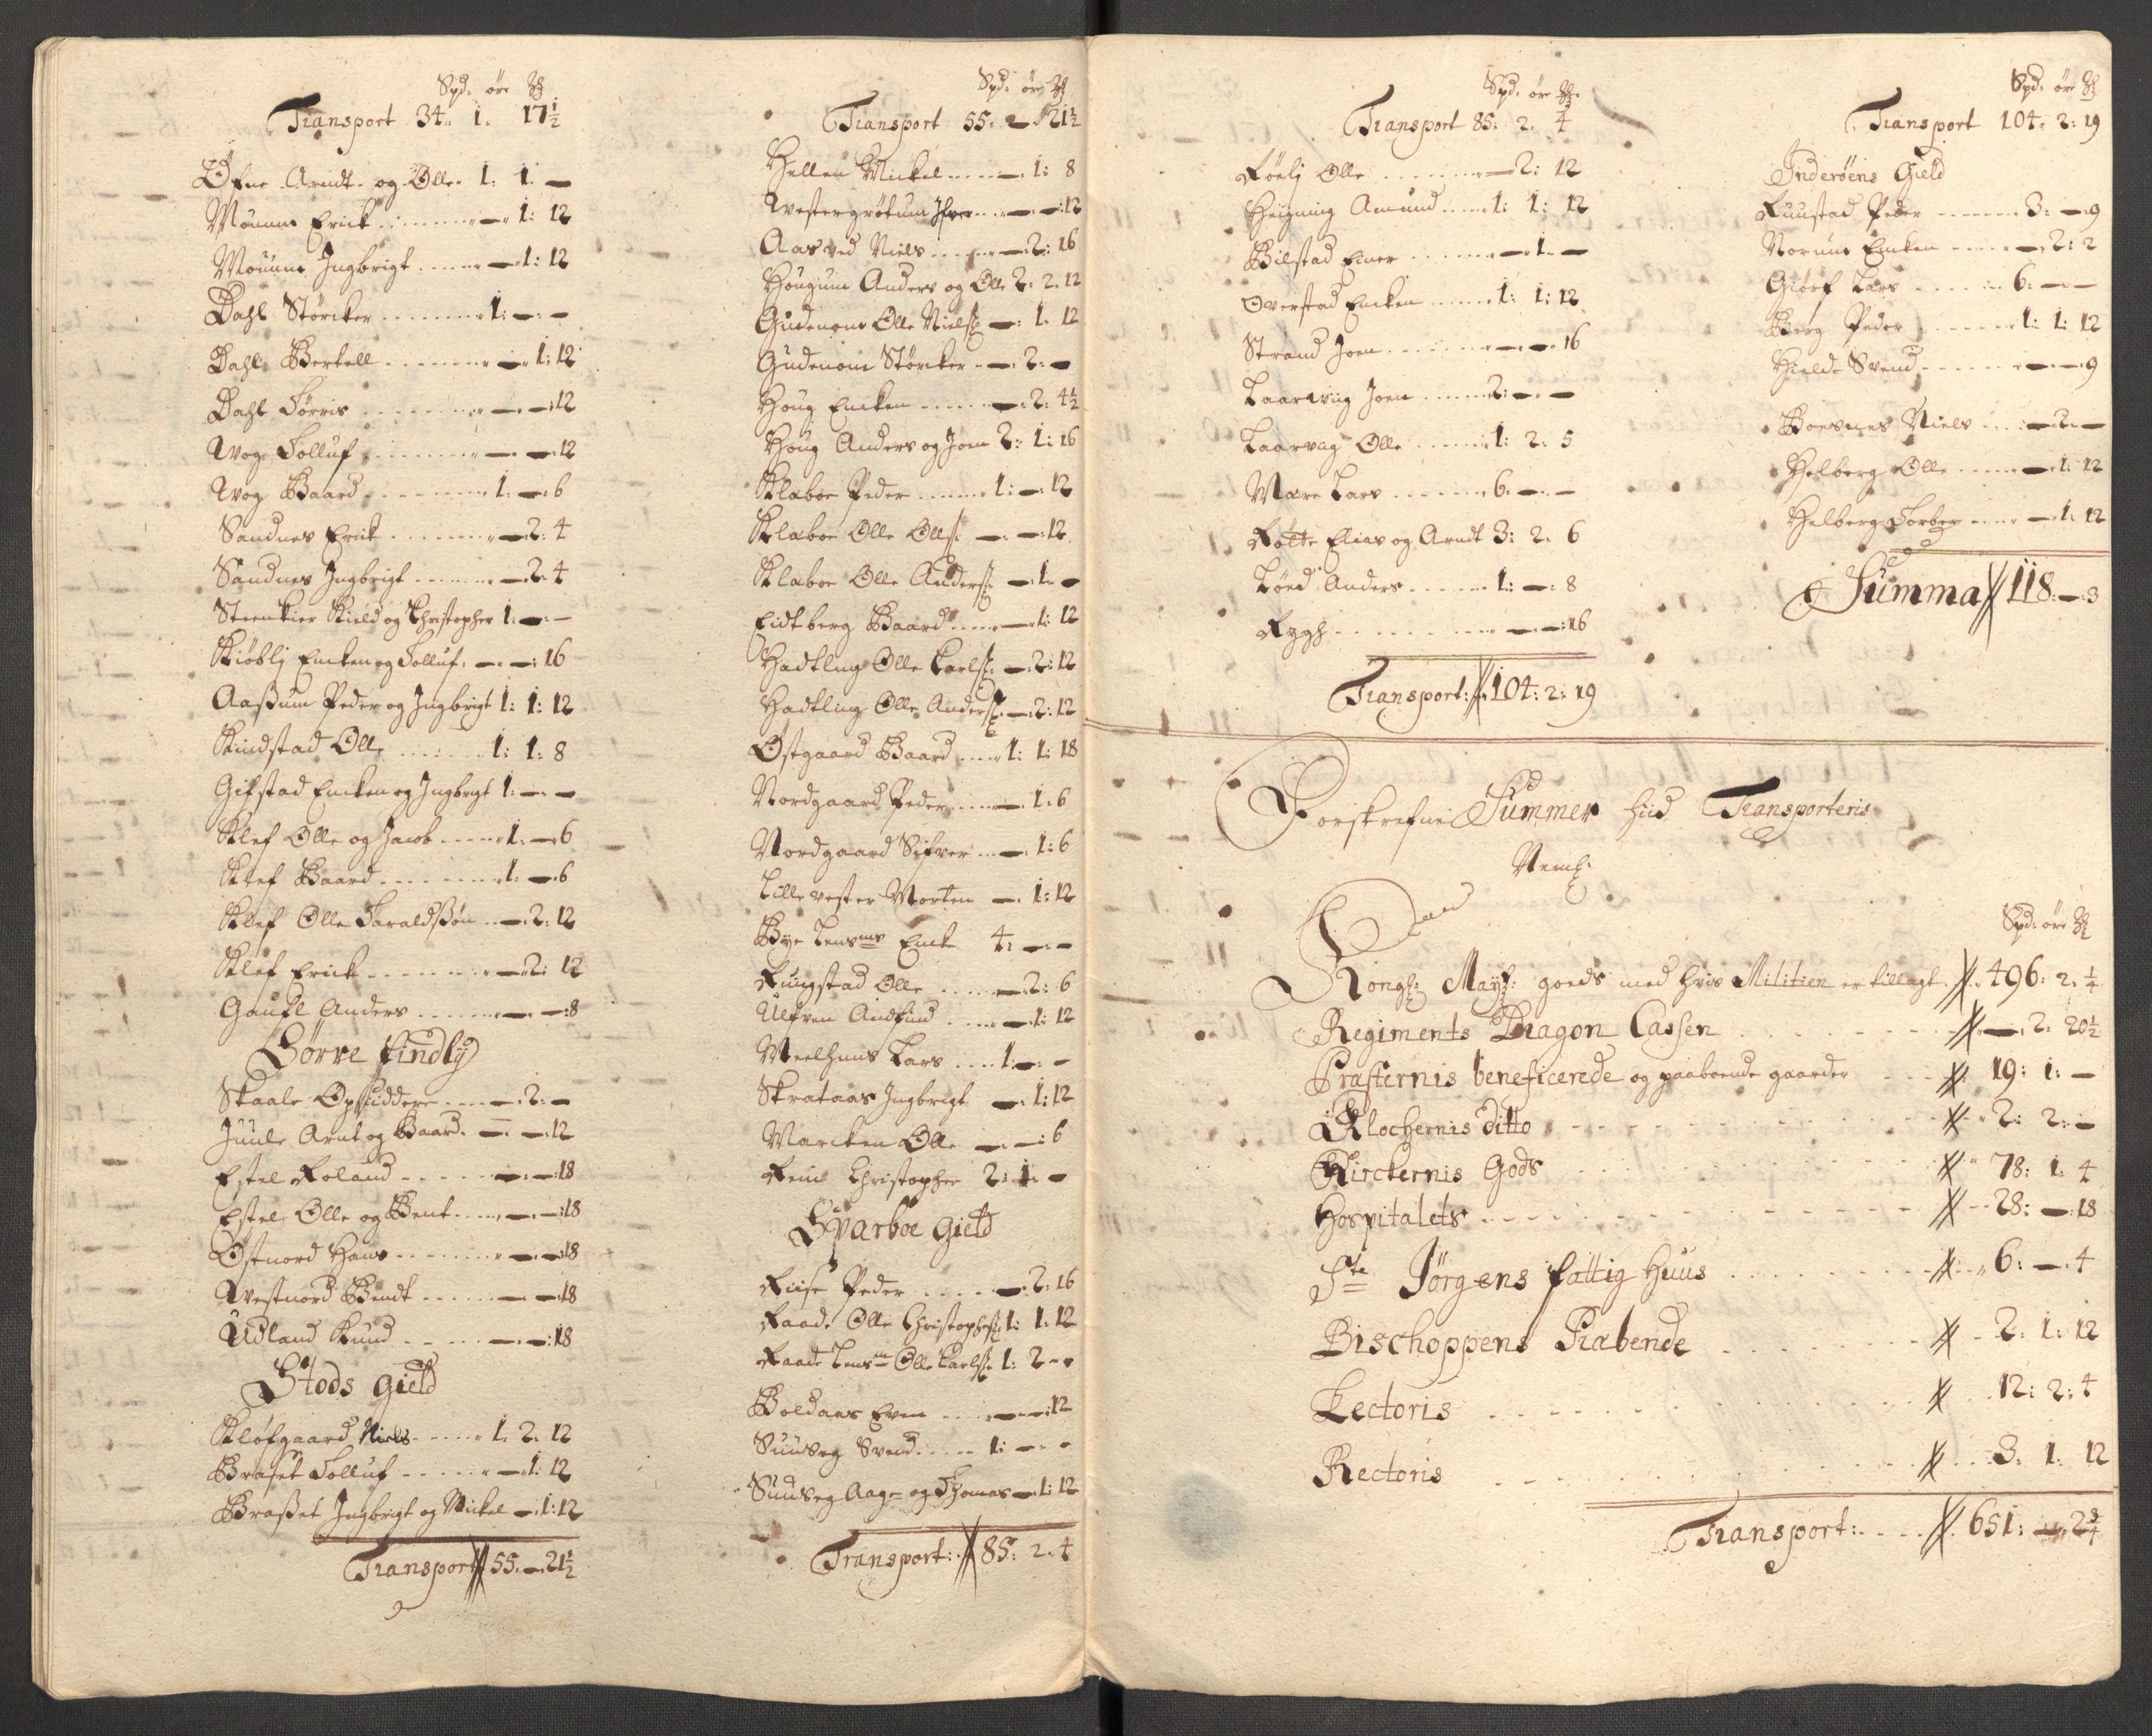 Spd. öre ₰
Transport 34. 1. 17½
Øfne Arndt og Olle 1. 1. —
Moumb Erick — 1: 12
Mouumb Ingbrigt — 1: 12
Dahl Störcker 1: — : —
Dahl Bertell — 1: 12
Dahl Torris — — 12
Wog Tolluf — — 12
Wog Baard 1. — 6
Sandnes Erick — 2. 4
Sandnes Ingbrigt — 2. 4
Steenkier Kield og Christopher 1. — : —
Kiöblj Encken og Tolluf. — — : 16
Aaßum Peder og Ingbrigt 1: 1: 12
Kindstad Olle 1: 1: 8
Gifstad Encken og Ingbrigt 1: — : —
Klef Olle og Jacob 1. — 6
Klef Baard 1. — 6
Klef Olle Haraldßön — 2: 12
Klef Erick — 2: 12
Gaufl Anders — — : 8
Börre findly
Skaale Opsiddere — 2: —
Juule Arnt og Baard. — — 12
Estel Roland — — : 18
Estel Olle og Bent — — : 18
Østnord Hans — — 18
Westnord Bendt — — 18
Udland Knud — — : 18
Stods gield
Kløfgaard Niels 1. 2. 12
Braset Tolluf — 1: 12
Braßet Ingbrigt og Mickel — 1: 12
Transport 55. — 21½
Spd. öre ₰
Transport 55. — 21½
Hellem Mickel — 1: 8
Westergrötum Ifver — — 12
Aasved Niels — 2: 16
Hougum Anders og Olle 2. 2. 12
Gudenom Olle Niels: — : 1. 12
Gudenom Störcker — 2. —
Houg Encken — 2. 4½
Houg Anders og Joen 2: 1: 16
Klaboe Peder 1: — 12
Klaboe Olle Ols: — — 12
Klaboe Olle Anders: — 1. —
Eidtberg Baard — 1: 12
Hadtling Olle Carls: — 2: 12
Hadtling Olle Anders: — 2: 12
Østgaard Baard 1: 1: 18
Nordgaard Peder — 1. 6
Nordgaard Sifver — 1: 6
Lille vester Morten — 1: 12
Bye Lensms Enck 4: — : —
Rungstad Olle — 2: 6
Ulfven Andfind — 1: 12
Meelhuus Lars 1: — : —
Skrataas Ingbrigt — 1: 12
Marcken Olle — — : 6
Rein Christopher 2: 1. —
Sparboe gield
Riise Peder — 2: 16
Raade Olle Christophers: 1: 1. 12
Raade Lensm Olle Carls: 1: 2 —
Boldaas Even — — : 12
Suuseg Svend 1: — —
Suuseg Aage og Thomas — 1: 12
Transport: 85: 2. 4
Spd. öre ₰
Transport 85: 2. 4
Föelj Olle — 2: 12
Heigning Amund 1: 1: 12
Bilstad Einer — 1. —
Overstad Encken 1: 1: 12
Strand Joen — — 16
Laarviig Joen 2: — —
Laarvig Olle 1: 2. 5
Mære Lars 6. — —
Røtte Elias og Arndt 3: 2. 6
Löed Anders 1: — : 8
Rygh — — : 16
Transport: 104: 2: 19
Spd. öre ₰
Transport 104. 2: 19
Inderöens Gield
Ruustad Peder 3: — 9
Norum Encken — 2: 2
Giörf Lars 6. — —
Berg Peder 1: 1: 12
Hielde Svend — — 9
Boesnes Niels — 2. —
Helberg Olle — 1. 12
Helberg Torber — 1: 12
Summa 118: — 3
Forskrefne Summer hid Transporteris
Neml:
Spd: öre ₰
Kongl: Mayt: goeds med hvis Militien er tillagt. 496: 2. ¼
Regiments Dragon Cassen — . 2: 20½
Præsternis beneficerede og paaboende gaarder 19: 1: —
Klochernis ditto 2: 2: —
Kirckernis Gods 78: 1. 4
Hospitalets 28: — 18
Ste Jörgens fattig Huus 6: — 4
Bischoppens Præbende 2: 1: 12
Lectoris 12: 2: 4
Rectoris 3. 1. 12
Transport: 651: — 2¾